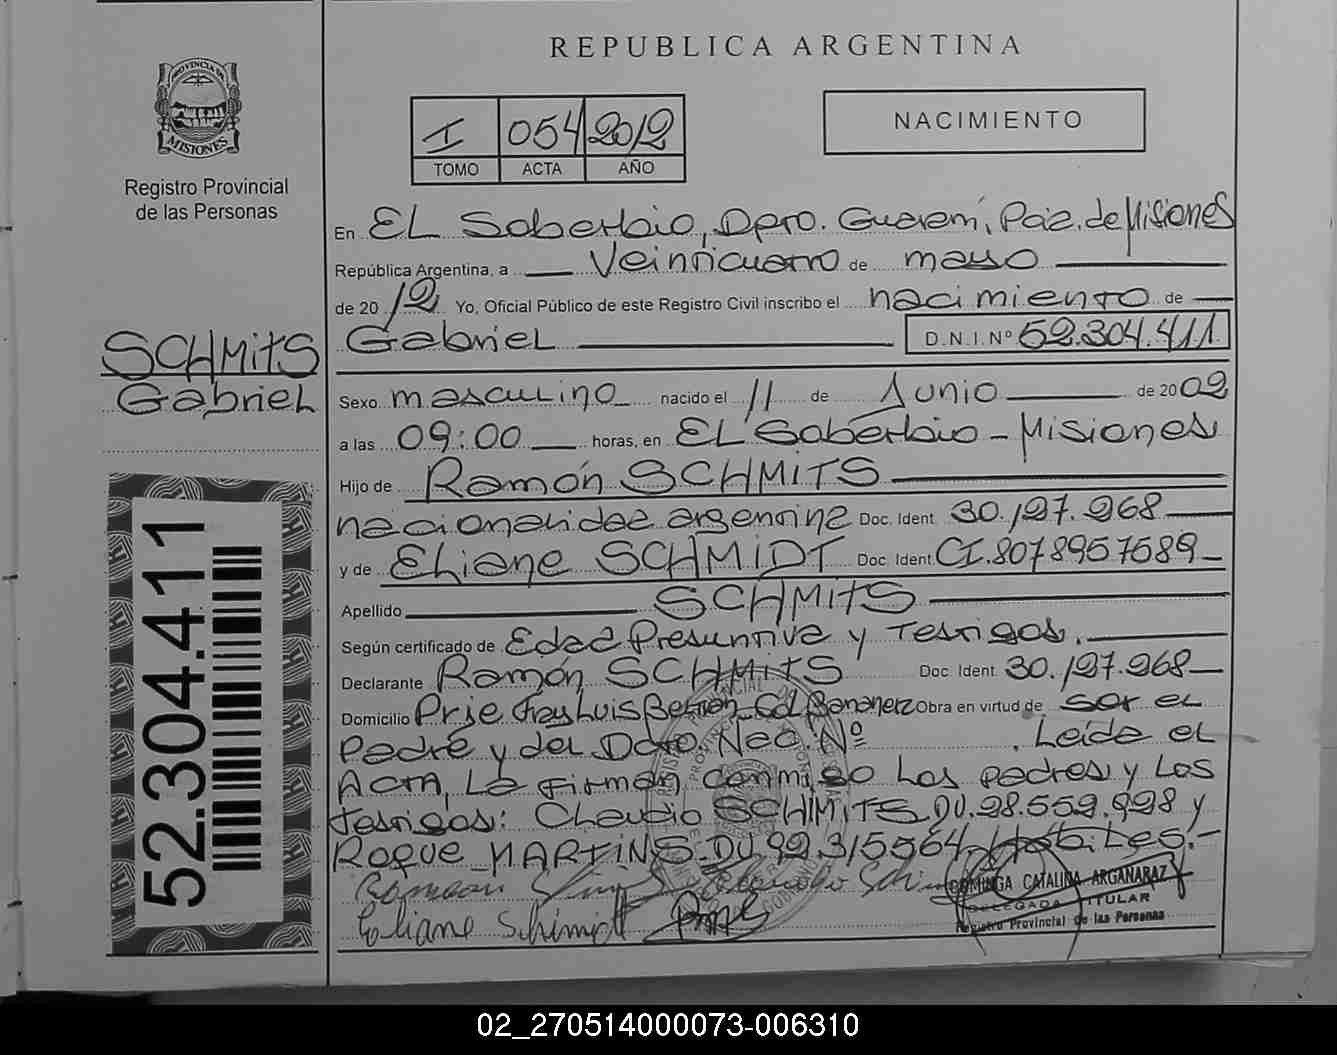 REPUBLICA ARGENTINA
PROVINCIA DE
MISIONES
Registro Provincial
de las Personas
I 054 2012
TOMO ACTA AÑO
NACIMIENTO
En EL Soberbio, Dpto. Guaraní, Pcia. de Misiones
República Argentina, a Veinticuatro de mayo
de 2012 Yo, Oficial Público de este Registro Civil inscribo el nacimiento de
Gabriel D.N.I. Nº 52.304.411
SCHMITS
Gabriel
Sexo masculino nacido el 11 de Junio de 2002
a las 09:00 horas, en EL Soberbio - Misiones
Hijo de Ramón SCHMITS
nacionalidad argentina Doc. Ident. 30.197.968
y de Eliane SCHMIDT Doc. Ident. CI. 8078957589
Apellido SCHMITS
Según certificado de Edad Presuntiva y Testigos.
Declarante Ramón SCHMITS Doc. Ident. 30.197.968
Domicilio Prje Fray Luis Beltrán Col Bananera Obra en virtud de ser el
Padre y del Dcto. Nac. Nº . Leída el
Acta, La firman conmigo Los padres y Los
testigos: Claudio SCHIMITS DU. 28.559.998 y
Roque MARTINS DU 92.315564. Hábiles.-
Eliane Schimidt
DOMINGA CATALINA ARGAÑARAZ
DELEGADA TITULAR
Registro Provincial de las Personas
52.304.411
02_270514000073-006310